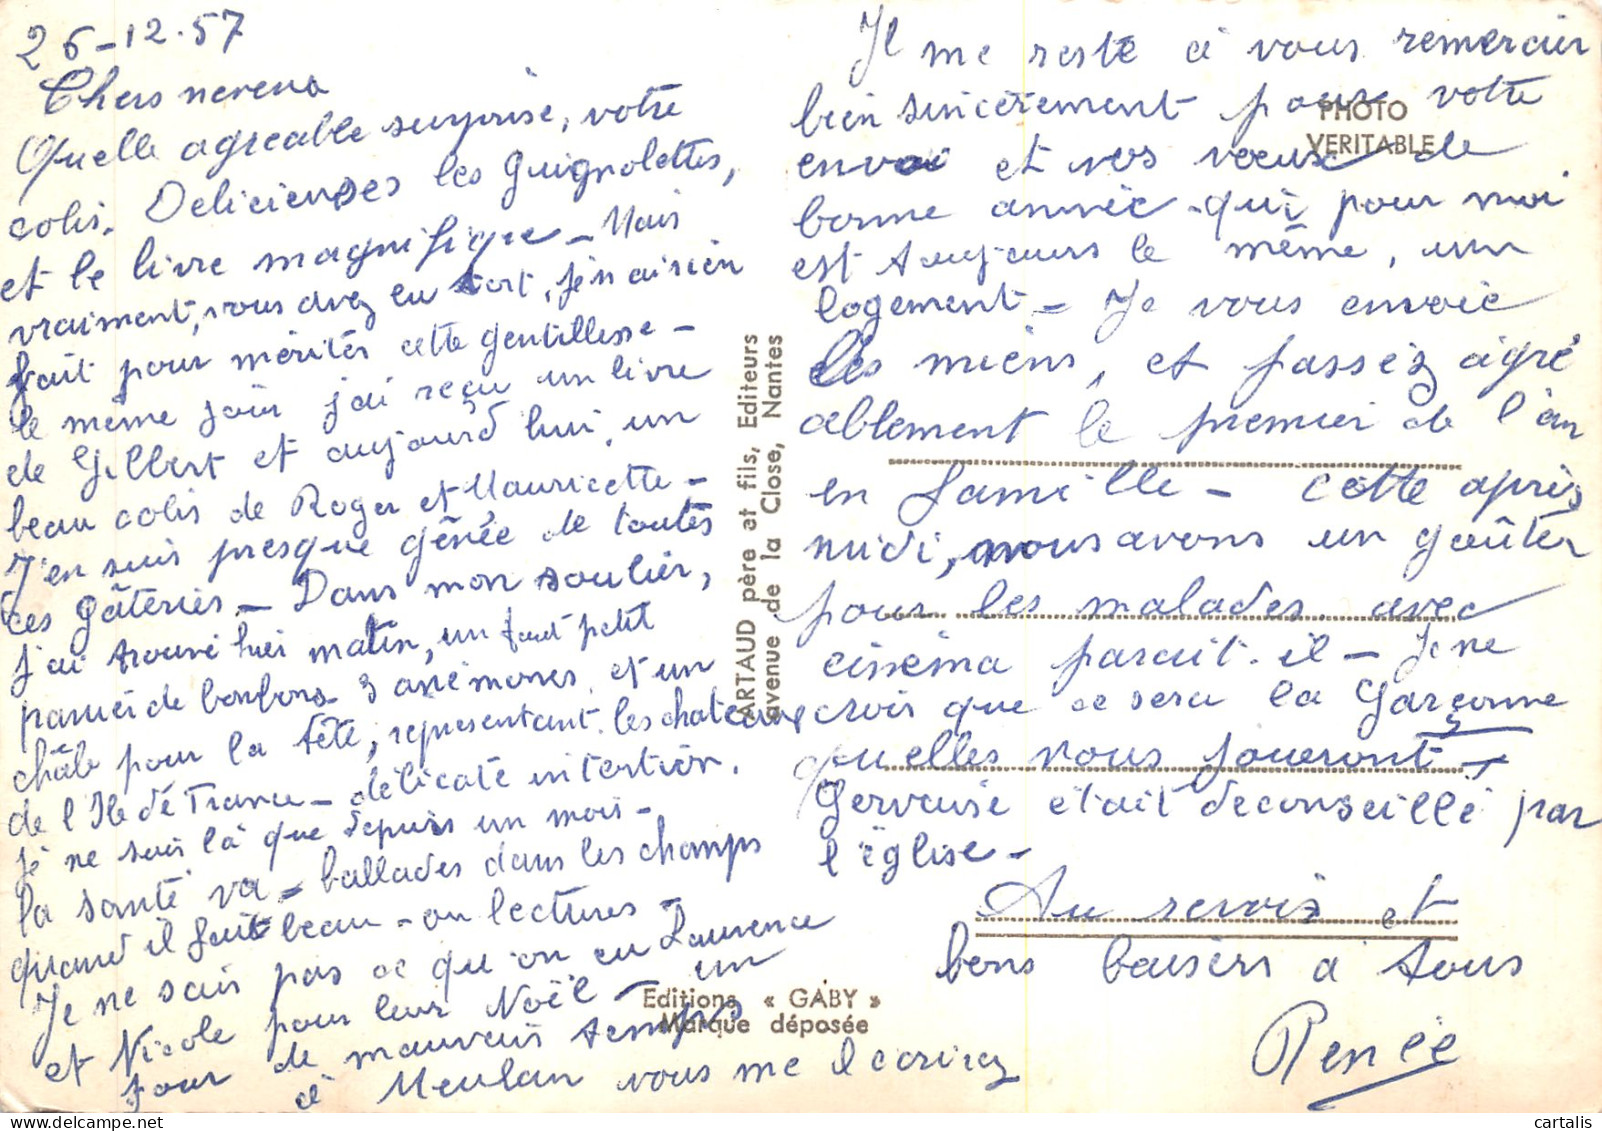 26-12-57
Chers neveux
Quelle agréable surprise, votre
colis. Delicieuses les Guignolettes,
et le livre magnifique - Mais
vraiment, vous avez eu tort, je n'ai rien
fait pour mériter cette gentillesse -
le même jour j'ai reçu un livre
de Gilbert et aujourd'hui, un
beau colis de Roger et Mauricette -
J'en suis presque gênée de toutes
ces gâteries - Dans mon soulier,
j'ai trouvé hier matin, un tout petit
panier de bonbons 3 anémones, et un
châle pour la tête, représentant les chateaux
de l'Ile de France - délicate intention.
Je ne suis là que depuis un mois -
la santé va - ballades dans les champs
quand il fait beau - ou lectures -
Je ne sais pas ce qu'on eu Laurence
et Nicole pour leur Noël - un
jour de mauvais temps
à Meulan vous me l'ecrirez
Il me reste à vous remercier
bien sincèrement pour votre
envoi et vos voeux de
bonne année qui pour moi
est toujours le même, un
logement - Je vous envoie
les miens, et passez agré
ablement le premier de l'an
en famille - Cette après
midi, nous avons un goûter
pour les malades avec
cinéma parait-il - Je ne
crois que ce sera la Garçonne
qu'elles nous joueront -
Gervaise était deconseillé par
l'église -
Au revoir et
bons baisers à tous
Renée
PHOTO
VERITABLE
ARTAUD père et fils, Editeurs
avenue de la Close, Nantes
Editions « GABY »
Marque déposée
cartalis.com